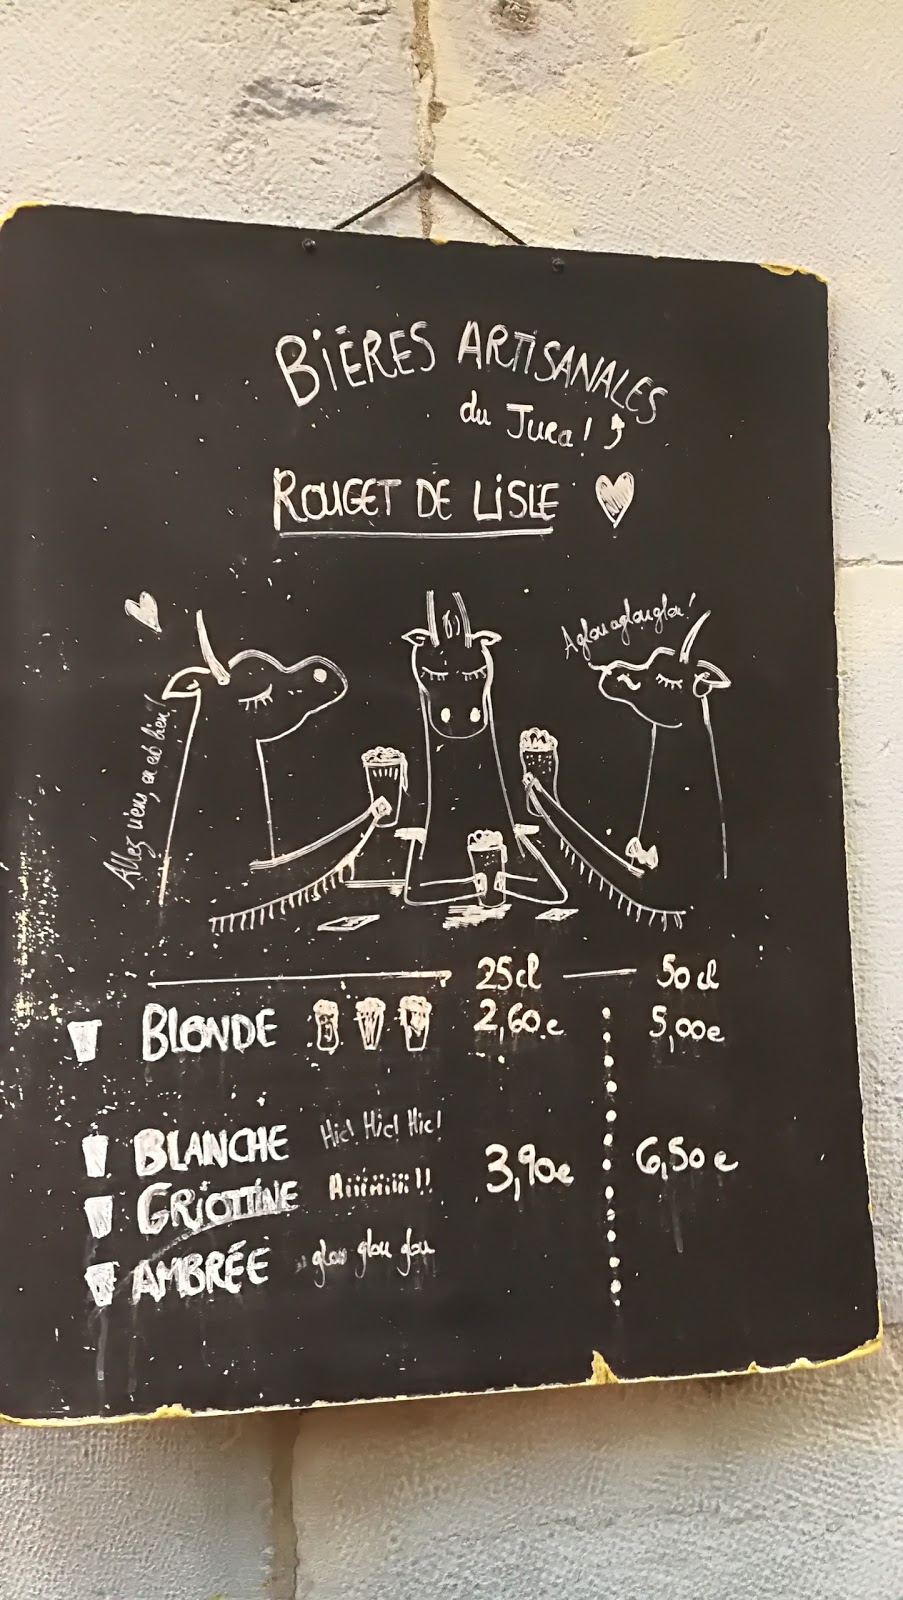 BIÈRES ARTISANALES
du Jura!
ROUGET DE LISLE
Allez viens, on est bien!
Aglouaglouglou!
25cl 50cl
BLONDE 2,60€ 5,00€
BLANCHE Hic! Hic! Hic!
3,90€ 6,50€
GRIOTTINE
AMBRÉE glou glou glou